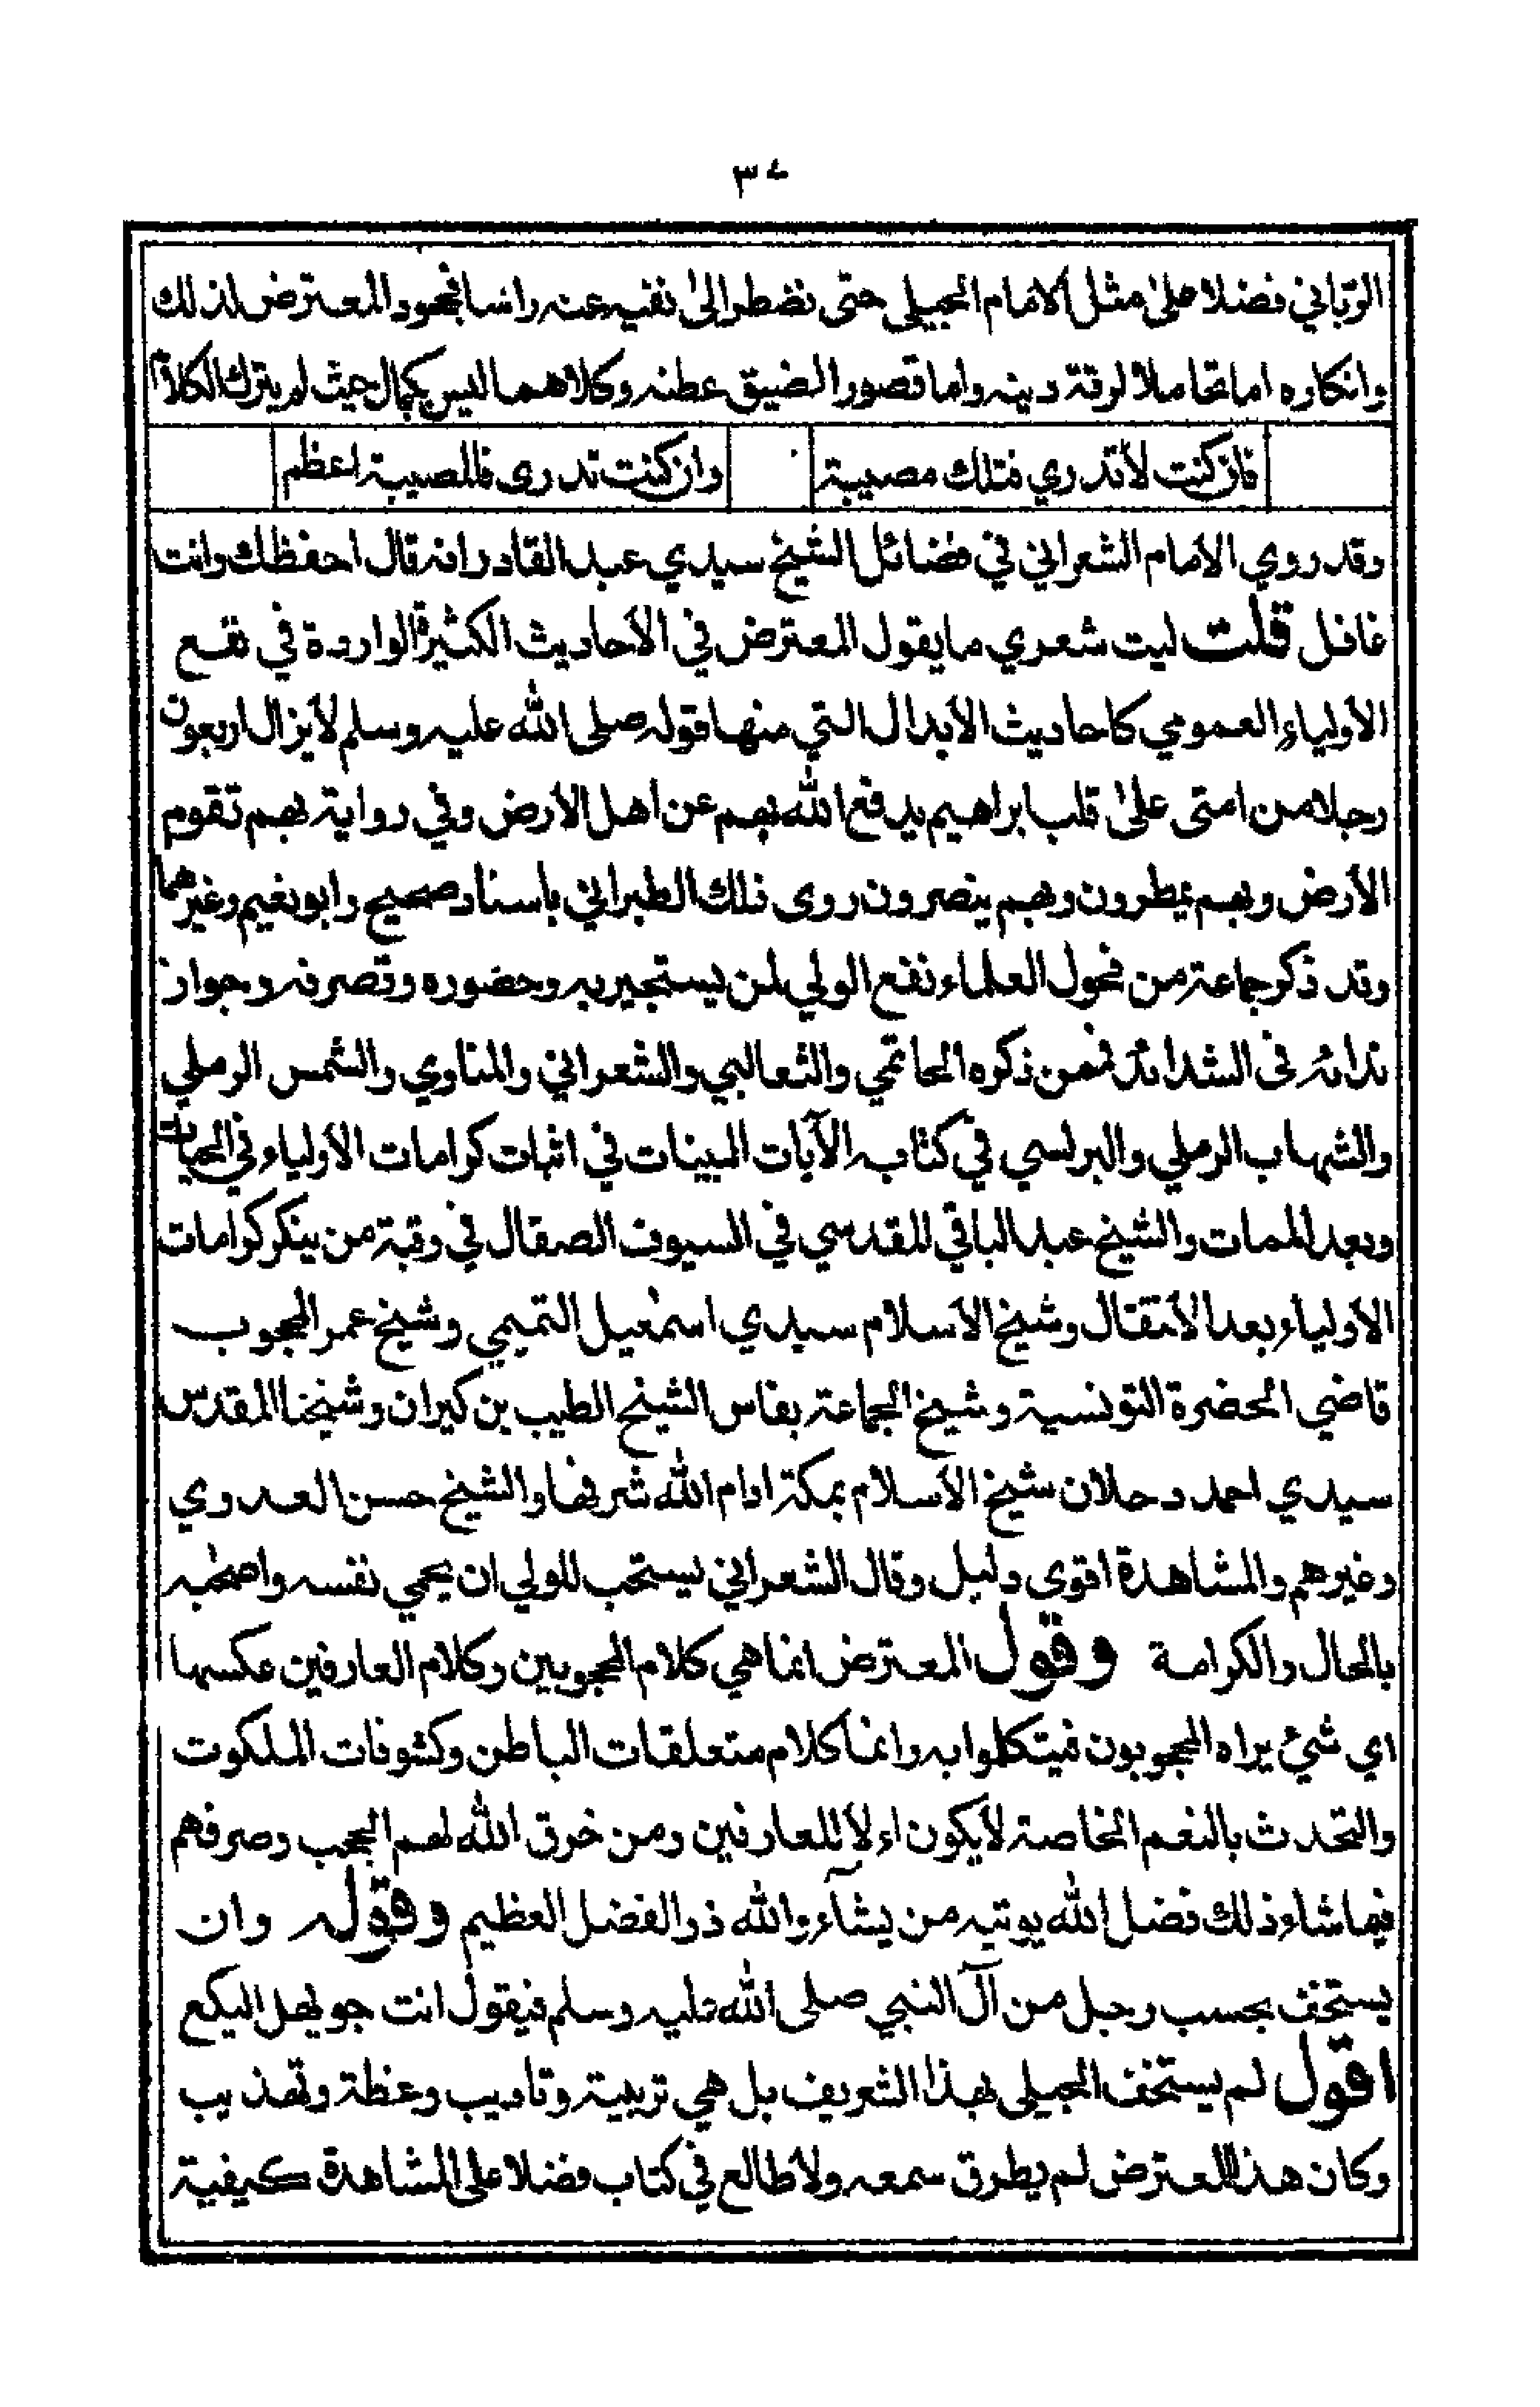 ٣٤
الرّباني فضلا على مثل الامام الجيلي حتى نضطر الى نفيه عنه راسا فجحود المعترض لذلك
وانكاره اما تحاملا لرقة دينه واما قصور الضيق عطنه وكلاهما ليس بكمال حيث لم يترك الكلام
فان كنت لاتدري فتلك مصيبة وان كنت تدرى فالمصيبة اعظم
وقد روي الامام الشعراني في فضائل الشيخ سيدي عبد القادر انه قال احفظك وانت
غافل قلت ليت شعري ما يقول المعترض في الأحاديث الكثيرة الواردة في نفع
الأولياء العمومي كاحاديث الأبدال التي منها قوله صلى الله عليه وسلم لايزال اربعون
رجلا من امتى على قلب ابراهيم يدفع الله بهم عن اهل الأرض وفي رواية بهم تقوم
الأرض وبهم يمطرون وبهم ينصرون روى ذلك الطبراني باسناد صحيح وابو نعيم وغيرهما
وقد ذكر جماعة من فحول العلماء نفع الولي لمن يستجير به وحضوره وتصرفه وجواز
ندائه فى الشدائد فممن ذكره الحاتمي والثعالبي والشعراني والمناوي والشمس الرملي
والشهاب الرملي والبرلسي في كتابه الآيات المبينات في اثبات كرامات الأولياء في الحيات
وبعد الممات والشيخ عبد الباقي المقدسي في السيوف الصقال في رقبة من ينكر كرامات
الأولياء بعد الأنتقال وشيخ الأسلام سيدي اسمٰعيل التميمي وشيخ عمر المحجوب
قاضي الحضرة التونسية وشيخ الجماعة بفاس الشيخ الطيب بن كيران وشيخنا المقدس
سيدي احمد دحلان شيخ الأسلام بمكة ادام الله شرفها والشيخ حسن العدوي
وغيرهم والمشاهدة اقوى دليل وقال الشعراني يستحب للولي ان يحمي نفسه واصحٰبه
بالحال والكرامة وقول المعترض انما هي كلام المحجوبين وكلام العارفين عكسها
اي شئ يراه المحجوبون فيتكلموا به وانما كلام متعلقات الباطن وكشوفات الملكوت
والتحدث بالنعم الخاصة لايكون اءلا للعارفين ومن خرق الله لهم الحجب وصرفهم
فيما شاء ذلك فضل الله يوتيه من يشآء والله ذو الفضل العظيم وقوله وان
يستخف بحسب رجل من آل النبي صلى الله عليه وسلم فيقول انت جويهل اليكع
اقول لم يستخف الجيلى بهذا الشريف بل هي تربية وتاديب وعظة وتهذيب
وكان هذا المعترض لم يطرق سمعه ولاطالع في كتاب فضلا على المشاهدة كيفية